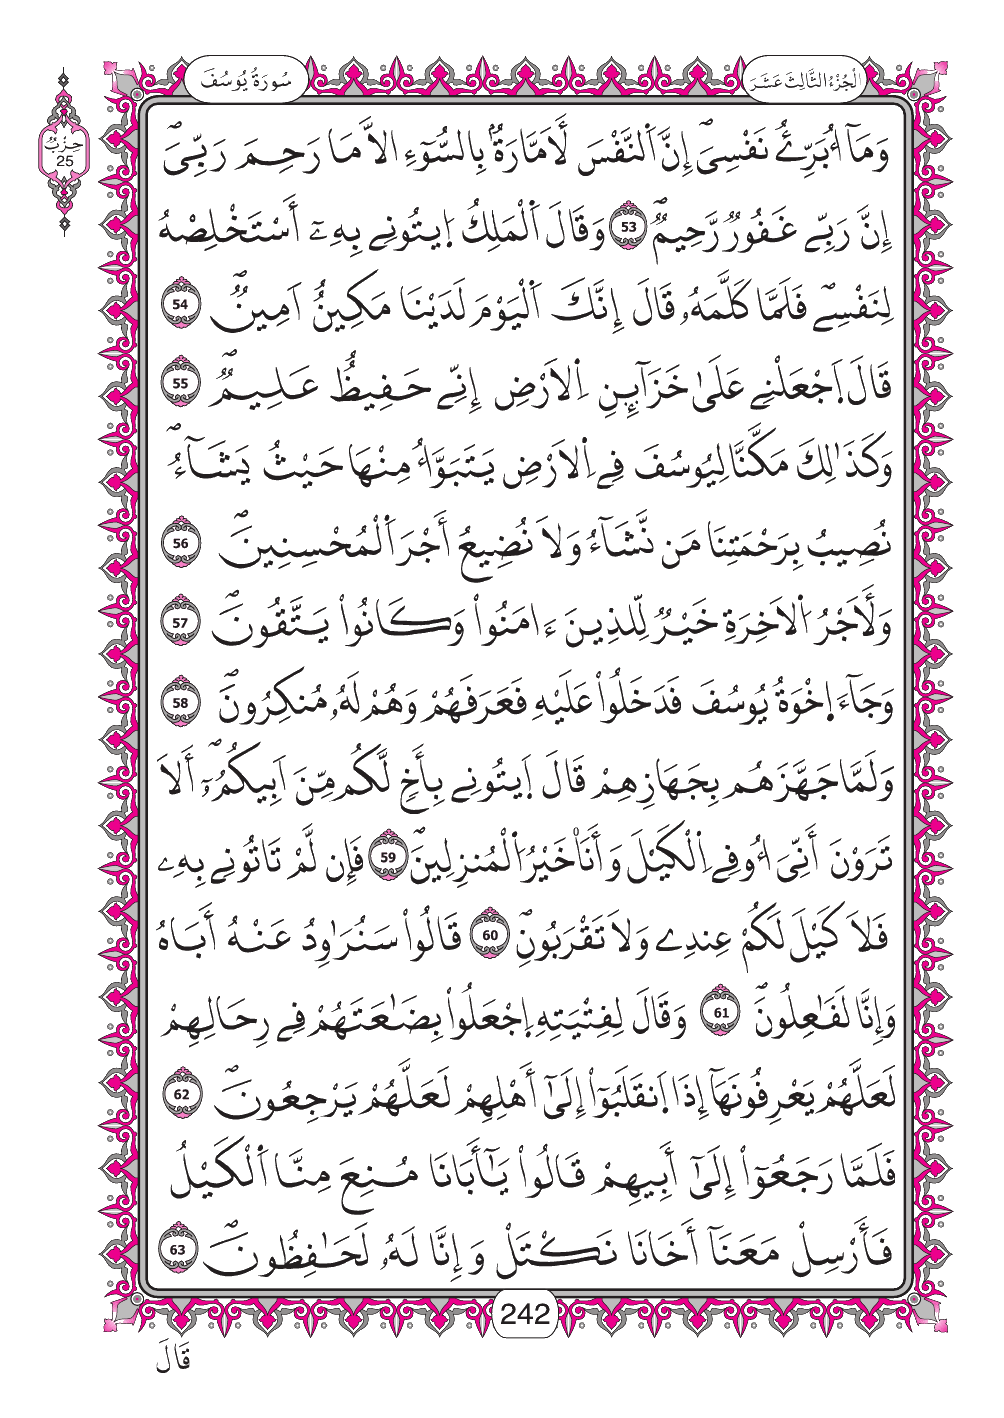 الْجُزْءُ الثَّالِثَ عَشَرَ
سُورَةُ يُوسُفَ
حِزْبٌ
25
وَمَآ أُبَرِّئُ نَفْسِيَ إِنَّ اَ۬لنَّفْسَ لَأَمَّارَةُۢ بِالسُّوٓءِ الَّا مَا رَحِمَ رَبِّيَ
إِنَّ رَبِّے غَفُورٞ رَّحِيمٞ 53 وَقَالَ اَ۬لْمَلِكُ اُ۪يتُونِے بِهِۦٓ أَسْتَخْلِصْهُ
لِنَفْسِے فَلَمَّا كَلَّمَهُۥ قَالَ إِنَّكَ اَ۬لْيَوْمَ لَدَيْنَا مَكِينٌ اَمِينٞ 54
قَالَ اَ۪جْعَلْنِے عَلَىٰ خَزَآئِنِ اِ۬لَارْضِ إِنِّے حَفِيظٌ عَلِيمٞ 55
وَكَذَٰلِكَ مَكَّنَّا لِيُوسُفَ فِے اِ۬لَارْضِ يَتَبَوَّأُ مِنْهَا حَيْثُ يَشَآءُ
نُصِيبُ بِرَحْمَتِنَا مَن نَّشَآءُ وَلَا نُضِيعُ أَجْرَ اَ۬لْمُحْسِنِينَ 56
وَلَأَجْرُ اُ۬لَاخِرَةِ خَيْرٞ لِّلذِينَ ءَامَنُواْ وَكَانُواْ يَتَّقُونَ 57
وَجَآءَ اِ۪خْوَةُ يُوسُفَ فَدَخَلُواْ عَلَيْهِ فَعَرَفَهُمْ وَهُمْ لَهُۥ مُنكِرُونَ 58
وَلَمَّا جَهَّزَهُم بِجَهَازِهِمْ قَالَ اَ۪يتُونِے بِأَخٖ لَّكُم مِّنَ اَبِيكُمُۥٓ أَلَا
تَرَوْنَ أَنِّيَ أُوفِے اِ۬لْكَيْلَ وَأَنَا۠ خَيْرُ اُ۬لْمُنزِلِينَ 59 فَإِن لَّمْ تَاتُونِے بِهِۦ
فَلَا كَيْلَ لَكُمْ عِندِے وَلَا تَقْرَبُونِ 60 قَالُواْ سَنُرَٰوِدُ عَنْهُ أَبَاهُ
وَإِنَّا لَفَٰعِلُونَ 61 وَقَالَ لِفِتْيَتِهِ اِ۪جْعَلُواْ بِضَٰعَتَهُمْ فِے رِحَالِهِمْ
لَعَلَّهُمْ يَعْرِفُونَهَآ إِذَا اَ۪نقَلَبُوٓاْ إِلَىٰٓ أَهْلِهِمْ لَعَلَّهُمْ يَرْجِعُونَ 62
فَلَمَّا رَجَعُوٓاْ إِلَىٰٓ أَبِيهِمْ قَالُواْ يَٰٓأَبَانَا مُنِعَ مِنَّا اَ۬لْكَيْلُ
فَأَرْسِلْ مَعَنَآ أَخَانَا نَكْتَلْ وَإِنَّا لَهُۥ لَحَٰفِظُونَ 63
242
قَالَ